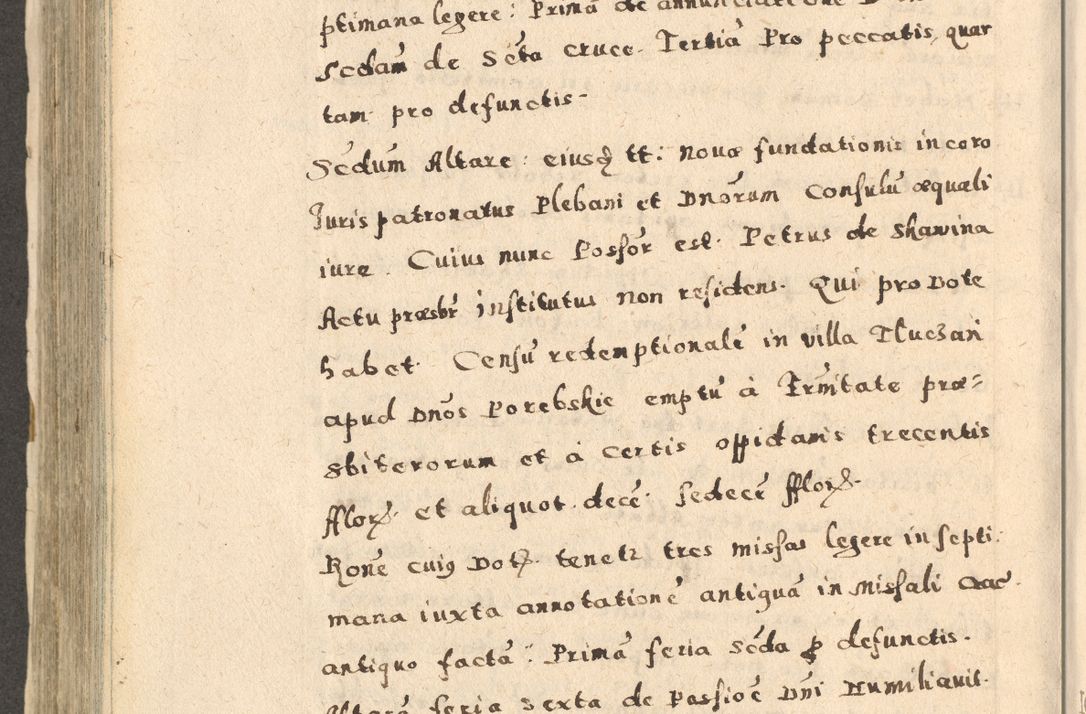 ptimana legere: Primā de annunciatione
Scdam̄ de Sc̄ta cruce. Tertiā Pro peccatis, quar
tam pro defunctis.
Sec̄dum Altare: eiusq̄ tt: nouæ fundationis in coro
Juris patronatus Plebani et Dnōrum Consulū æquali
iure. Cuius nunc Possor̄ est. Petrus de Skawina
Actu præsbr̄ institutus non residens. Qui pro Dote
habet. Censū redemptionalē in villa Tłuczań
apud Dnōs Porebskie emptū à Fraternitate præ=
sbiterorum et à certis oppidanis trecentis
fflorꝝ. et aliquot decē. sedecē fflorꝝ.
Rōne cuiꝰ Dotꝭ. tenetr tres missas legere in septi:
mana iuxta annotationē antiquā in Missali
antiquo factā: Primā feria Scd̄a ꝓ defunctis.
Alterā feria Sexta de Passioē Dnī Humiliauit.